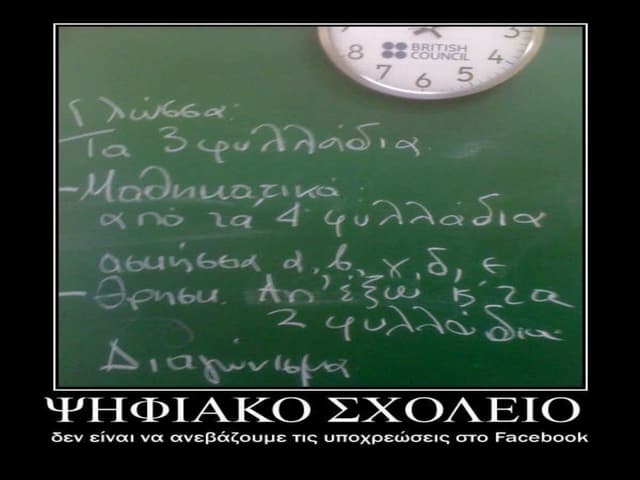 3
8 BRITISH COUNCIL 4
7 6 5
Γλώσσα:
Τα 3 φυλλάδια
-Μαθηματικά
από τα 4 φυλλάδια
ασκήσσα α, β, γ, δ, ε
-Θρησκ. Απ' έξω κ' τα
2 φυλλάδια
Διαγώνισμα
ΨΗΦΙΑΚΟ ΣΧΟΛΕΙΟ
δεν είναι να ανεβάζουμε τις υποχρεώσεις στο Facebook